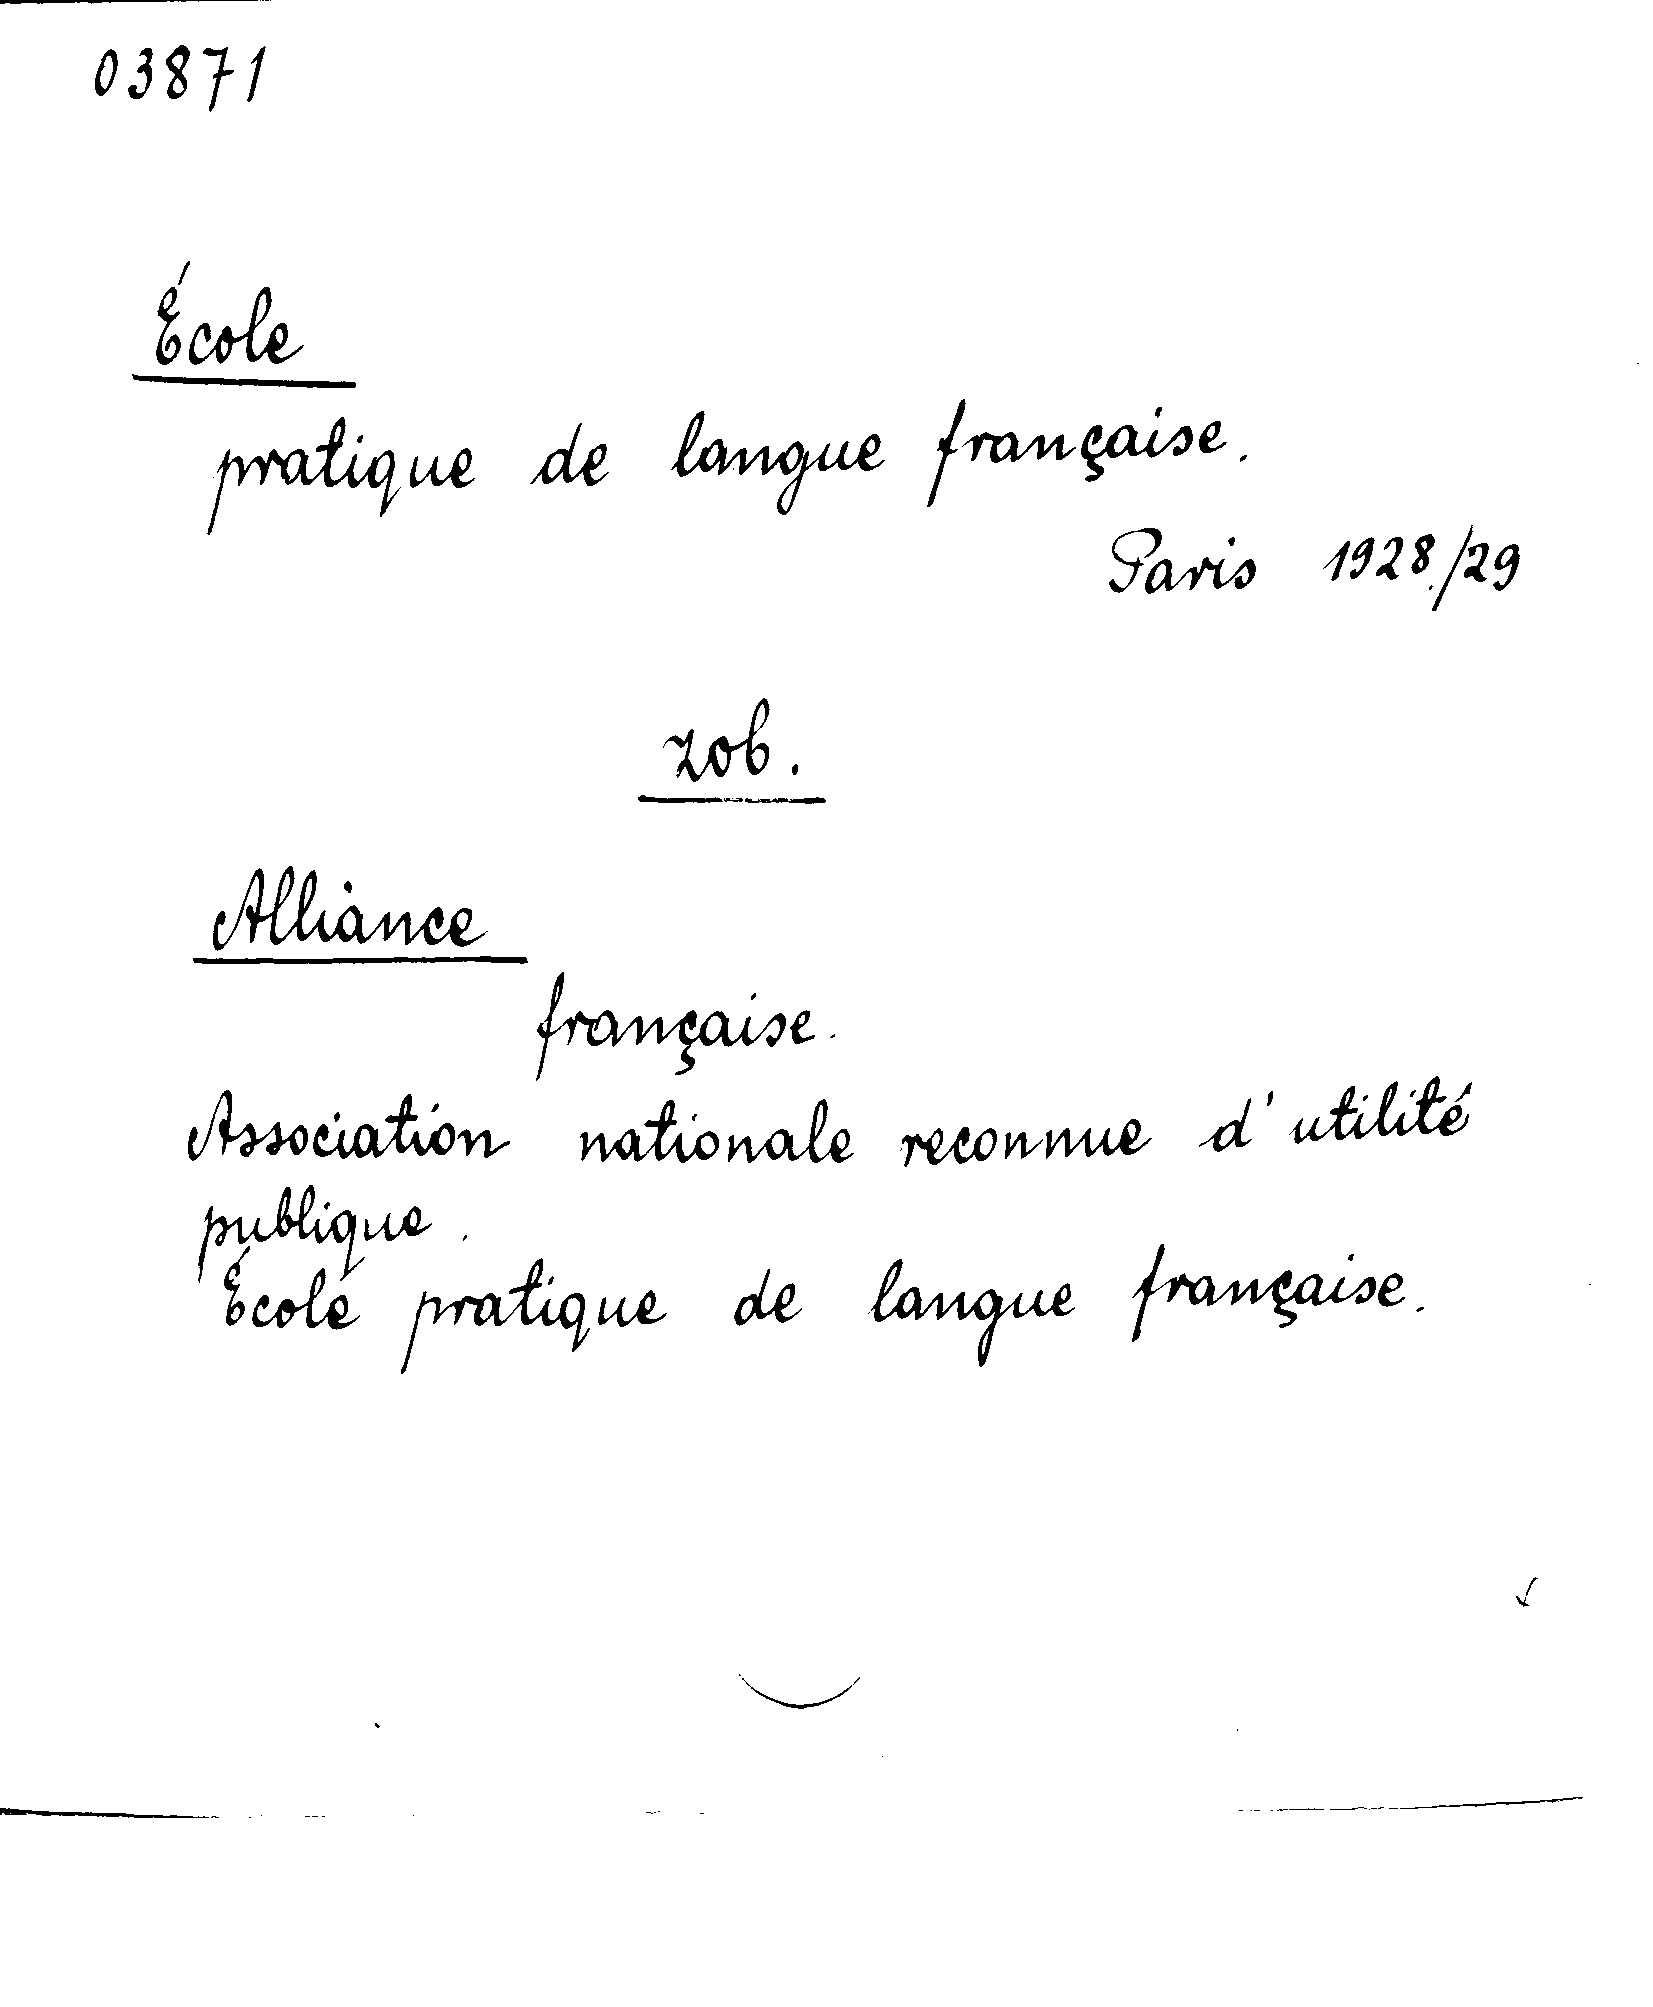 03871
École
pratique de langue française.
Paris 1928/29
zob.
Alliance
française.
Association nationale reconnue d'utilité
publique.
École pratique de langue française.